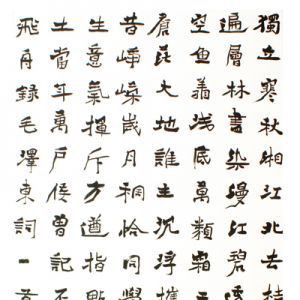 獨立寒秋湘江北去
遍層林盡染漫江碧
空魚翔浅底萬類霜
蒼茫大地誰主沉浮
昔崢嶸歲月稠恰同
生意氣揮斥方遒指
土當年萬戶侯曾記
飛舟録毛澤東詞一